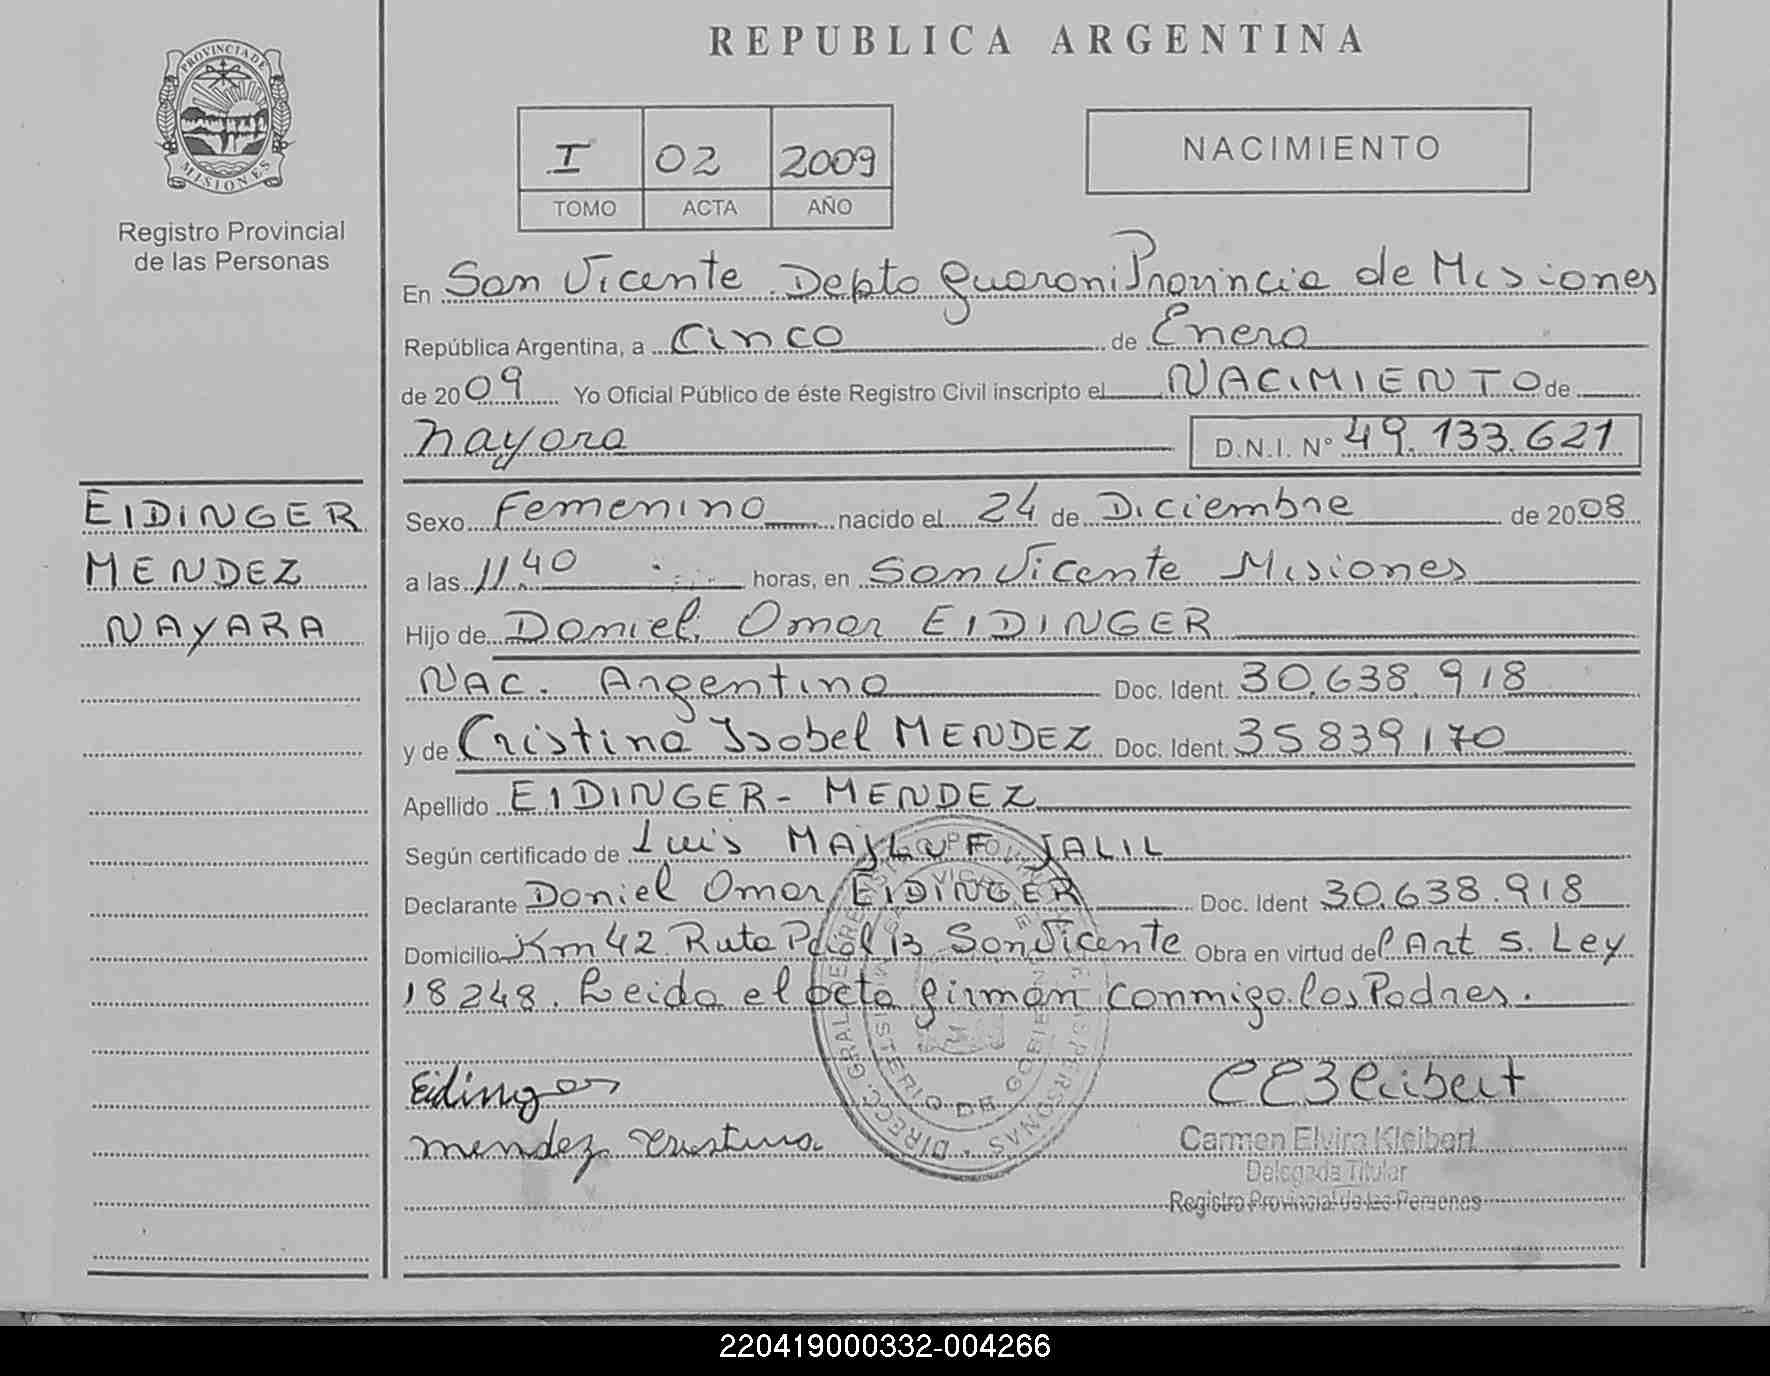 REPUBLICA ARGENTINA
PROVINCIA DE
MISIONES
Registro Provincial
de las Personas
I 02 2009
TOMO ACTA AÑO
NACIMIENTO
En San Vicente Depto Guarani Provincia de Misiones
República Argentina, a Cinco de Enero
de 2009 Yo Oficial Público de éste Registro Civil inscripto el NACIMIENTO de
Nayara D.N.I. N° 49.133.621
EIDINGER
MENDEZ
NAYARA
Sexo Femenino nacido el 24 de Diciembre de 2008
a las 11.40 horas, en San Vicente Misiones
Hijo de Daniel Omar EIDINGER
NAC. Argentino Doc. Ident. 30.638.918
y de Cristina Isabel MENDEZ Doc. Ident. 35839170
Apellido EIDINGER - MENDEZ
Según certificado de Luis MAJLUF JALIL
Declarante Daniel Omar EIDINGER Doc. Ident 30.638.918
Domicilio Km 42 Ruta Pcial 13 San Vicente Obra en virtud del Art 5. Ley
18248. Leida el acta firman conmigo los Padres.
Eidinger
mendez cristina
Carmen Elvira Kleibert
Delegada Titular
Registro Provincial de las Personas
220419000332-004266